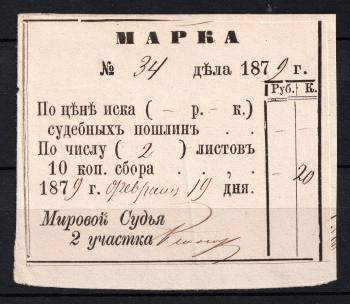 МАРКА
№ 34 дѣла 1879 г.
Руб. К.
По цѣнѣ иска ( — р. — к.)
судебныхъ пошлинъ . . — —
По числу ( 2 ) листовъ
10 коп. сбора . . , — 20
1879 г. февраля 19 дня.
Мировой Судья
2 участка